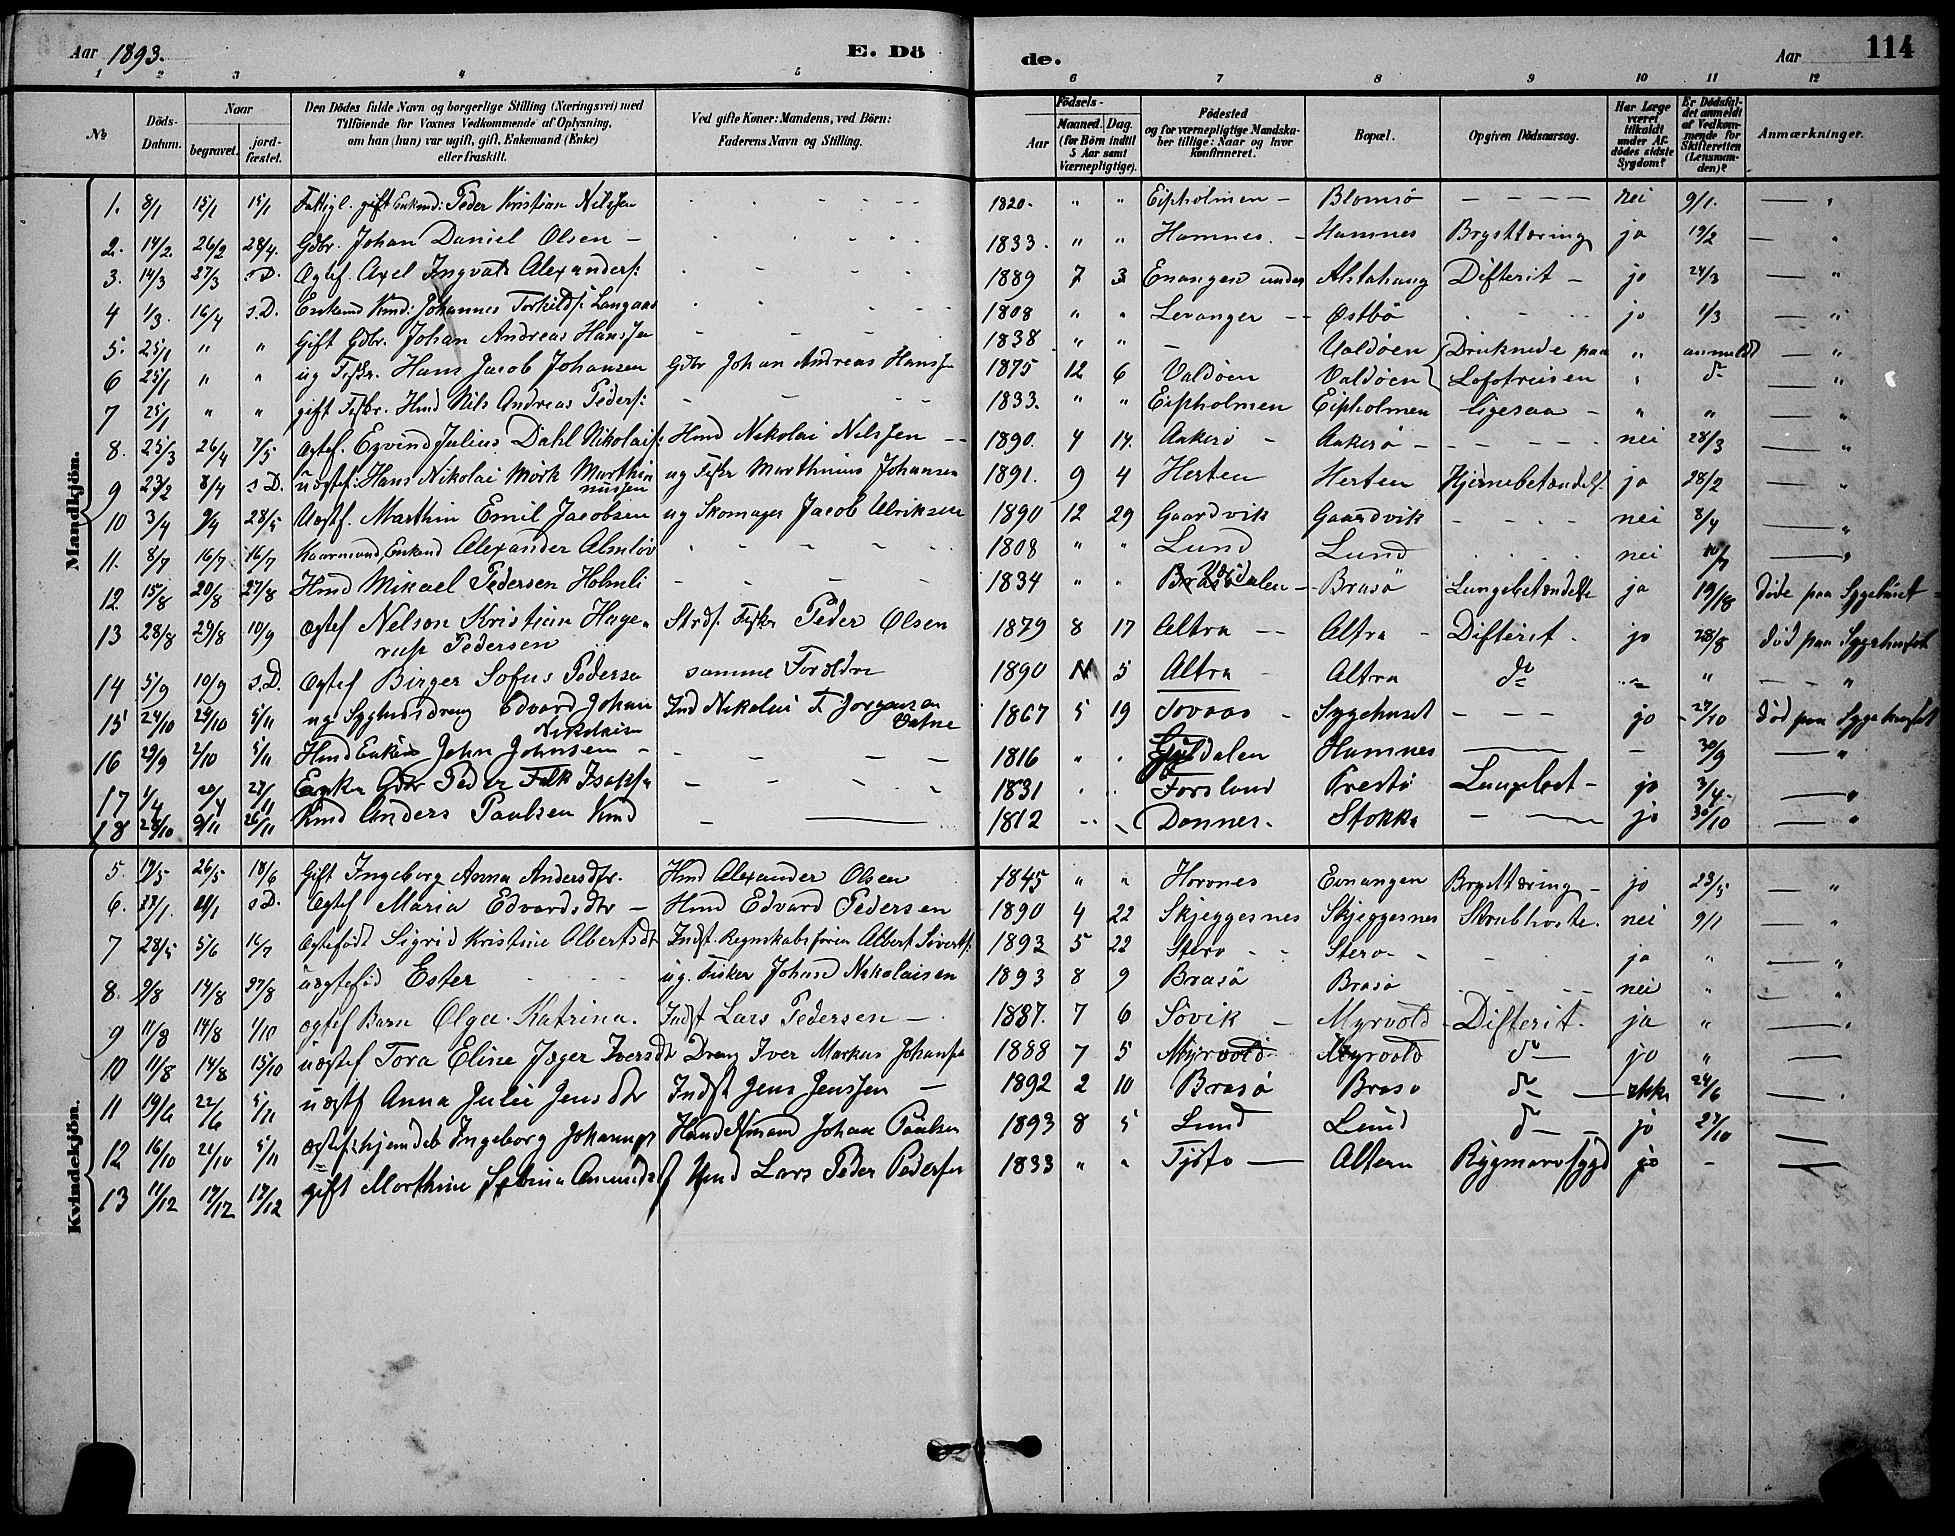 Aar 1893. E. Dö de. Aar 114
1 2 3 4 5 6 7 8 9 10 11 12
No Döds-Datum. Naar begravet. jordfæstet. Den Dödes fulde Navn og borgerlige Stilling (Næringsvei) med Tilföiende for Voxnes Vedkommende af Oplysning, om han (hun) var ugift, gift, Enkemand (Enke) eller fraskilt. Ved gifte Koner: Mandens, ved Börn: Faderens Navn og Stilling. Födsels- Aar Maaned. Dag. (for Börn indtil 5 Aar samt Værnepligtige). Födested og for værnepligtige Mandskaber tillige: Naar og hvor Konfirmeret. Bopæl. Opgiven Dödsaarsag. Har Læge været tilkaldt under Afdödes sidste Sygdom? Er Dödsfaldet anmeldt af Vedkommende for Skifteretten (Lensmanden)? Anmærkninger.
Mandkjön.
1. 8/1 15/1 15/1 Fattigl. gift Enkmd: Peder Kristian Nilssen 1820. " " Eipholmen - Blomsö - - - - nei 9/1. — "
2. 14/2. 26/2 28/4. Gdbr. Johan Daniel Olsen - 1833. " " Hamnes. - Hamnes Brysttæring ja 19/2 — "
3. 14/3 27/3 s.D. Ægtef. Axel Ingvald Alexanders: 1889 7 3 Enangen under Alstahaug Difterit - jo 24/3 — "
4 1/3. 16/4 s.D. Enkemd Kmd: Johannes Torkilds: Langaas 1808 " " Levanger - - Østbö jo 1/3 — "
5. 25/1 " " Gift Gdbr. Johan Andreas Hanssen 1838 " " - Valdöen Druknede paa " anmeldt — "
6 25/1 " " ug Fisker. Hans Jacob Johansen Gdbr Johan Andreas Hanssen 1875 12 6 Valdöen Valdöen Lofotreisen " do — "
7 25/1 " " gift Fiskr. Hmd Nils Andreas Peders: 1833. " " Eipholmen Eipholmen ligesaa - " " — "
8. 25/3 26/4 7/5 Ægtef. Eyvind Julius Dahl Nikolais: Hmd Nikolai Nilssen - - 1890. 4 14. Aakerö - Aakerö - nei 28/3 — "
9 23/2 8/4 s.D. uægtef: Hans Nikolai Mörk Marthinussen ug Fiskr Marthinius Johansen 1891. 9 4 Herten Herten Hjernebetændels. ja 28/2 — "
10 3/4 9/4 28/5 Uægtf. Marthin Emil Jacobsen ug Skomager Jacob Ulriksen 1890 12 29 Gaardvik Gaardvik - - - - nei 8/4 — "
11. 8/7 16/7 16/7 Kaarmand, Enkemd Alexander Almlöv 1808 " " Lund Lund nei 10/7 — "
12 15/8 20/8 27/8 Hmd Mikael Pedersen Holmli 1834 " " Brasö - Brasö Lungebetændelse ja 19/8 döde paa Sygehuset
13 28/8 29/8 10/9 Ægtef Nelson Kristian Hagerup Pedersen Strds. Fisker Peder Olsen 1879 8 17 Altra - - Altra - Difterit - jo 28/8 död paa Sygehuset
14 5/9 10/9 s.D. Ægtef Birger Sofus Pederse samme Forældre 1890 5 Altra Altra do " " - - "
15 24/10 29/10 5/11 ug. Sygehusdreng Edvard Johan Nikolaisen Ind Nikolai F. Jørgensen Vatne 1867 5 19 Tovaas - Sygehuset - - - jo 27/10 död paa Sygehuset
16 29/9 2/10 5/11 Hmd Enkem John Johnsen - 1816 " " Guldalen Hamnes — - 30/9 — "
17 1/4 20/4 27/11 Enkm Gdbr Peder Falk Isaksen 1831 " " Forsland Prestö Lungebet - jo 3/4. — "
18 28/10 9/11 26/11 Kmd Anders Paulsen Kmd - — 1812 " " Dönnes. Stokka - — jo 30/10 — "
Kvindekjön.
5. 19/5 26/5 18/6 Gift Ingeborg Anna Andersdtr. Hmd Alexander Olsen 1845 " " Hornes Evnangen Brysttæring - jo 23/5 — "
6. s.D. Ægtef Maria Edvardsdtr - Hmd Edvard Pedersen 1890 4 22 Skjeggesnes Skjeggesnes Strubhoste. nei 9/1 — "
7 28/5 5/6 16/7 Ægtefödt Sigrid Kristine Albertsdtr Indst. Regnskabsförer Albert Siverts: 1893 5 22 Sterö - - Sterö - - ja " — "
8. 9/8 14/8 27/8 uægtefød Ester ug. Fisker Johand Nikolaisen 1893 8 9 Brasö Brasö nei " — "
9 11/8 14/8 1/10 Ægtef Barn Olga Katrina. Indst Lars Pedersen - 1887. 7 6 Sövik - Myrvold - Difterit. ja " — "
10 11/8 14/8 15/10 uægtef Tora Eline Jæger Iversdtr Dreng Iver Markus Johanse 1888 7 5 Myrvold Myrvold do - jo " —
11 19/6 22/6 5/11 uægtf Anna Julie Jensdtr Indst Jens Jenssen - 1892 2 10 Brasö Brasö do - ikke 24/6 — .
12 16/10 20/10 5/11 Ægtef: hjemdöb Ingeborg Handelsmand Johan Paulsen 1893 8 5 Lund Lund do - - jo 27/10 —
13 11/12 17/12 17/12 gift Morthine Hmd Lars Peder Pedersen 1833 " " Tjöto — Altern Rygmarvssygd jo - —